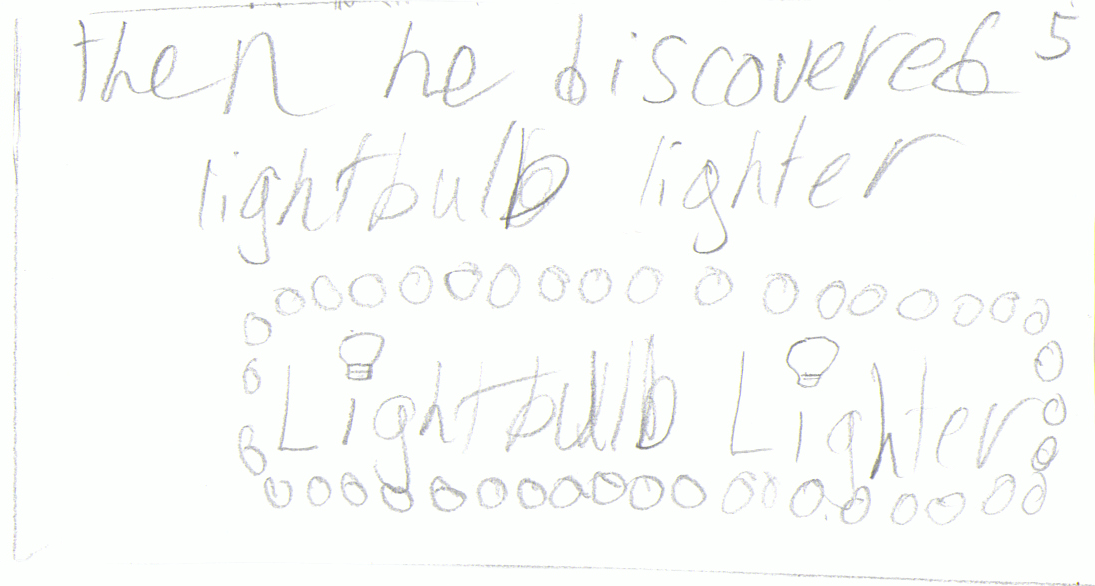 then he discovered 5
lightbulb lighter
Lightbulb Lighter